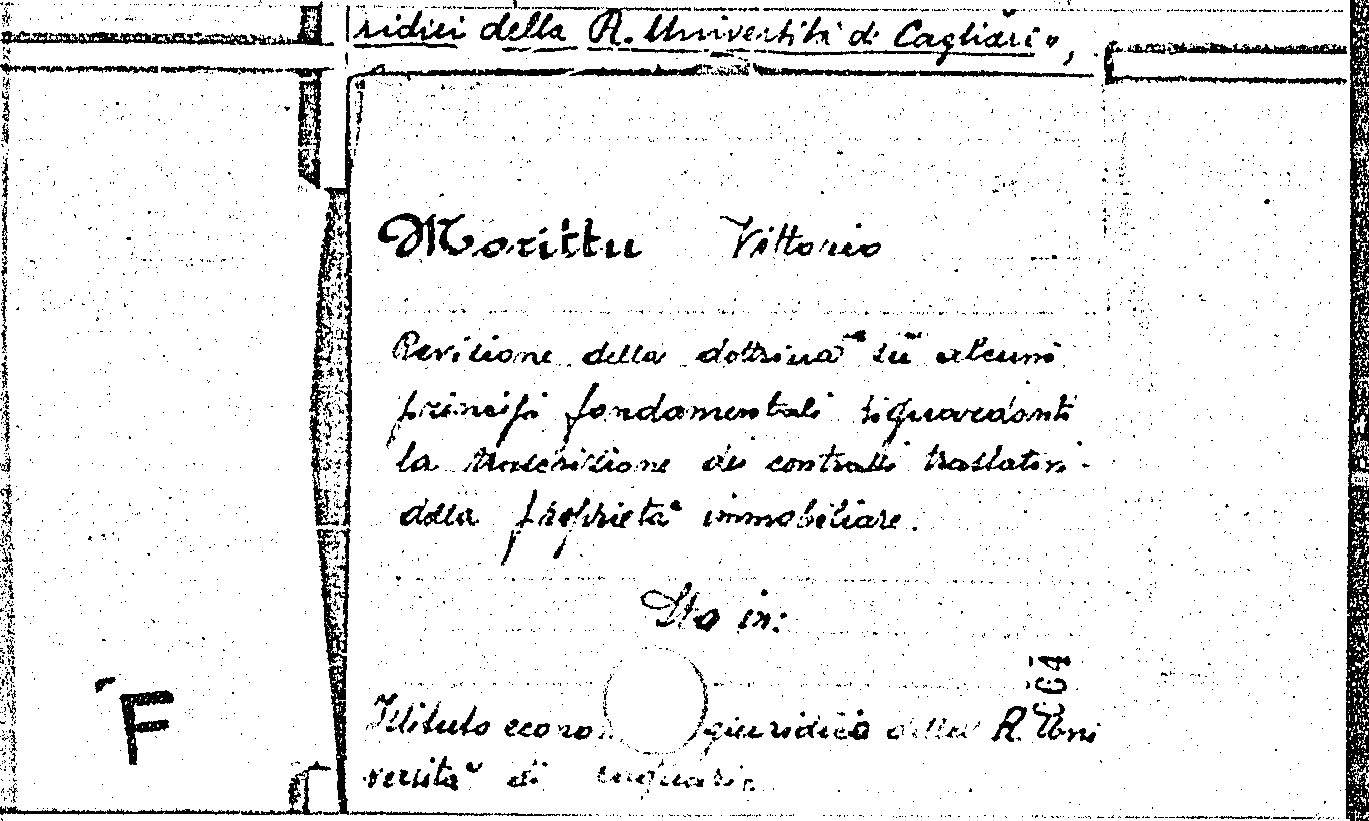 ridici della R. Università di Cagliari",
Morittu Vittorio
Revisione della dottrina su alcuni
principi fondamentali riguardanti
la trascrizione dei contratti traslativi
della proprietà immobiliare.
Sta in:
Istituto econo giuridico della R. Uni
versità di
F